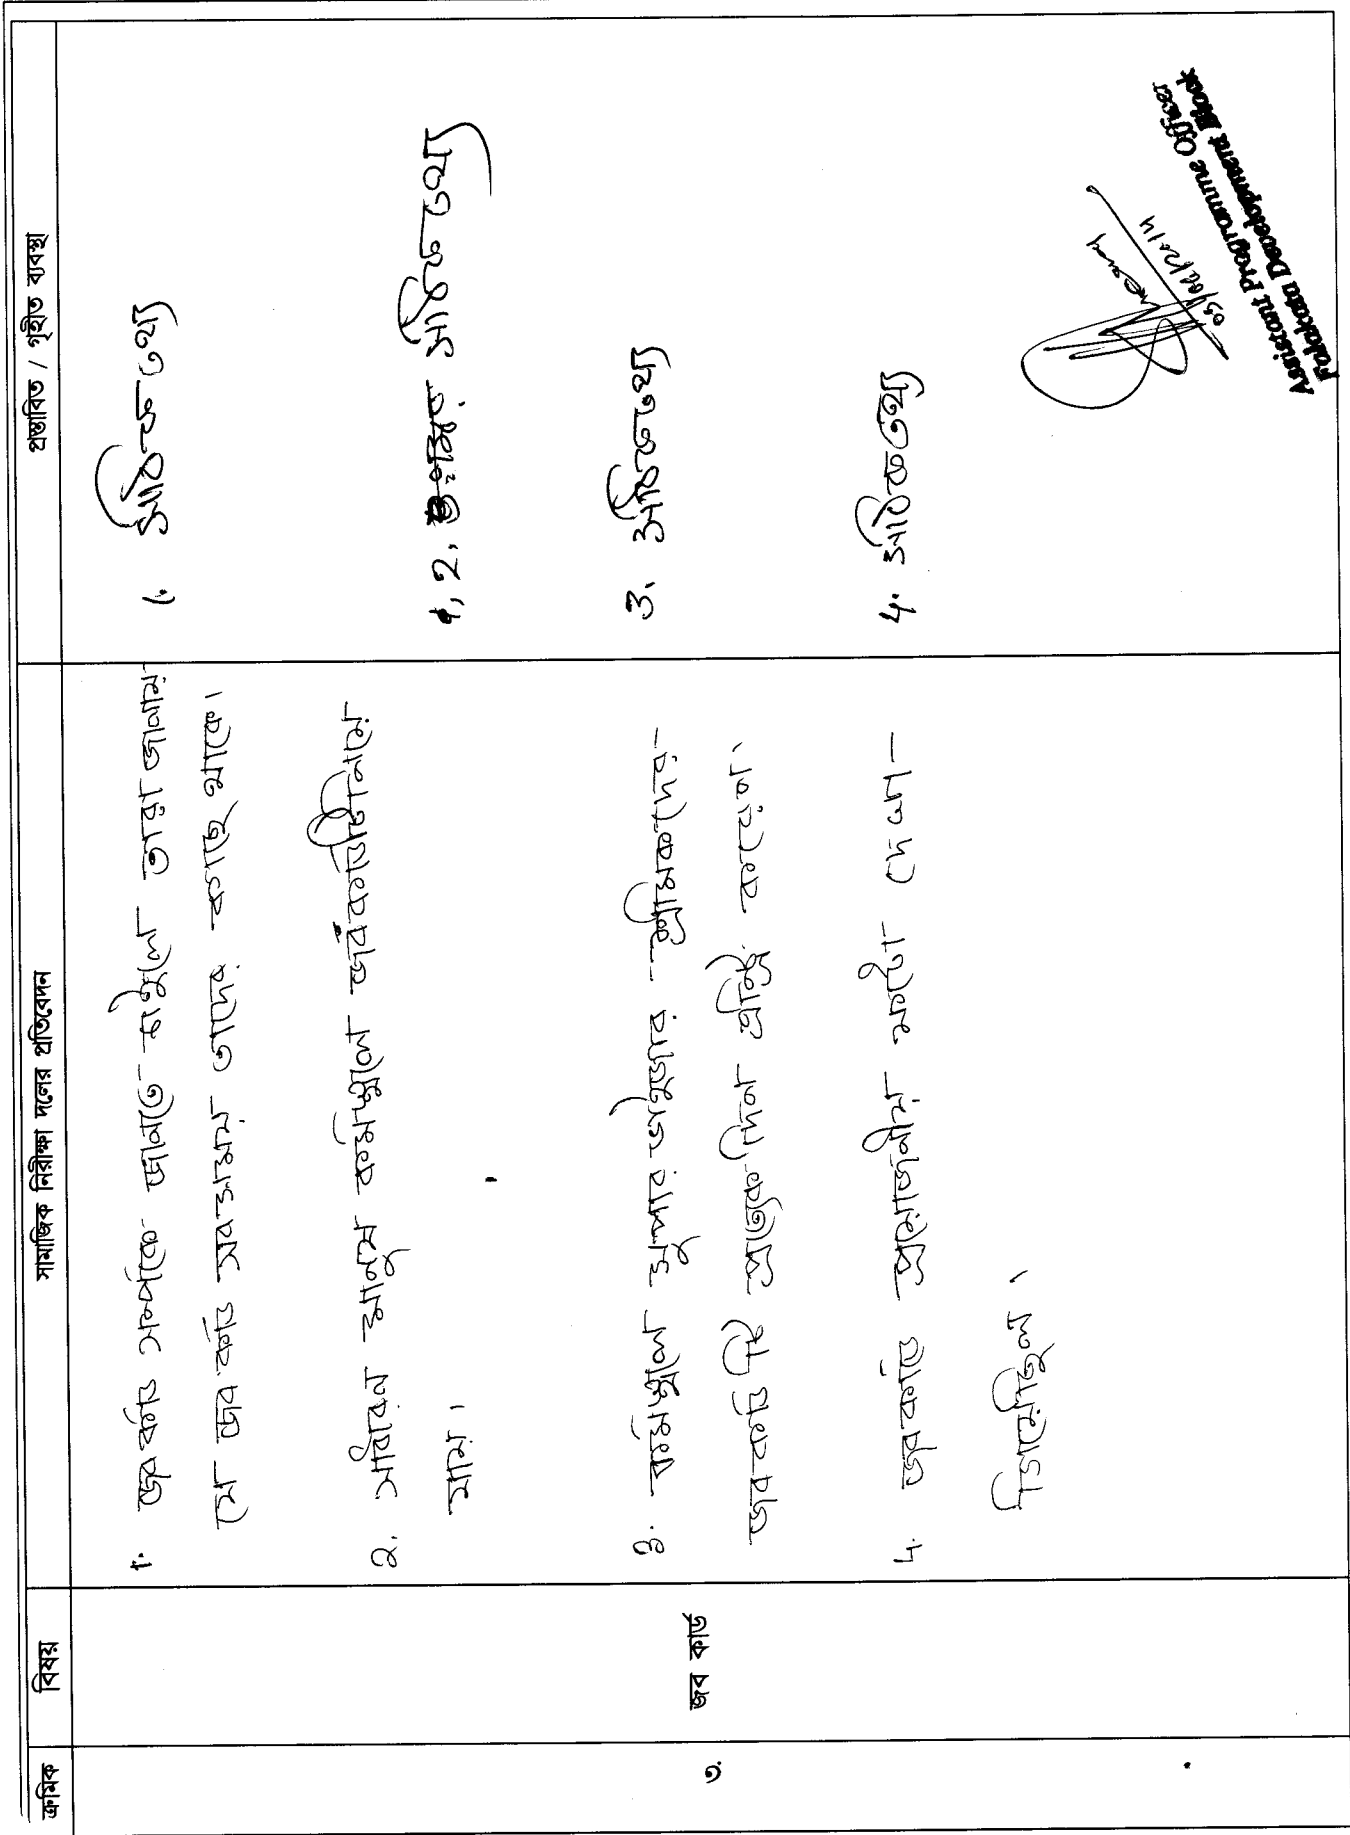 ক্রমিক
বিষয়
সামাজিক নিরীক্ষা দলের প্রতিবেদন
প্রস্তাবিত / গৃহীত ব্যবস্থা
৩.
জব কার্ড
1. জব কার্ড সম্পর্কে জানতে চাইলে তারা জানায়
যে জব কার্ড সবসময় তাদের কাছে থাকে।
2. সাধারন মানুষ কর্মস্থলে জবকার্ডটি নিয়ে
যায়।
3. কর্মস্থলে সুপার ভাইজার শ্রমিকদের
জবকার্ড টি প্রত্যেকদিন করেন।
4. জবকার্ডে প্রয়োজনীয় ফটো দেওয়া
1. সঠিক তথ্য
2. সঠিক তথ্য
3. সঠিক তথ্য
4. সঠিক তথ্য
Assistant Programme Officer
Falakata Development Block